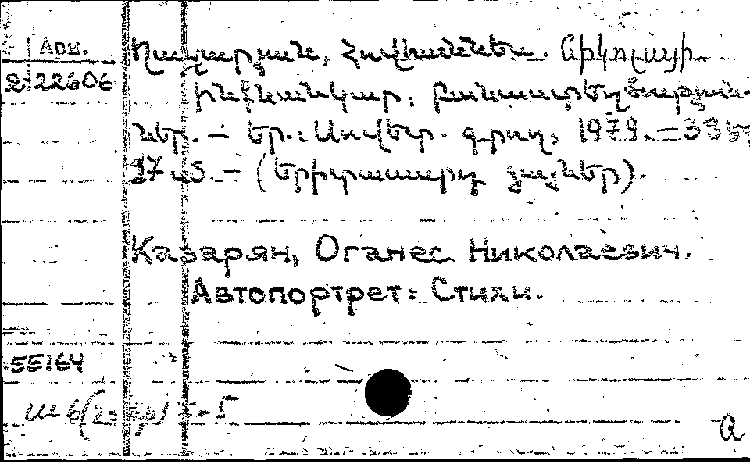 Арм.
2-22606
Ղազարյան, Հովհաննես Նիկոլայի.
Ինքնանկար: Բանաստեղծություն-
ներ. — Եր.: Սովետ. գրող, 1979. — 
37 սմ. — (Երիտասարդ ձայներ).
Казарян, Оганес Николаевич.
Автопортрет: Стихи.
55164
a